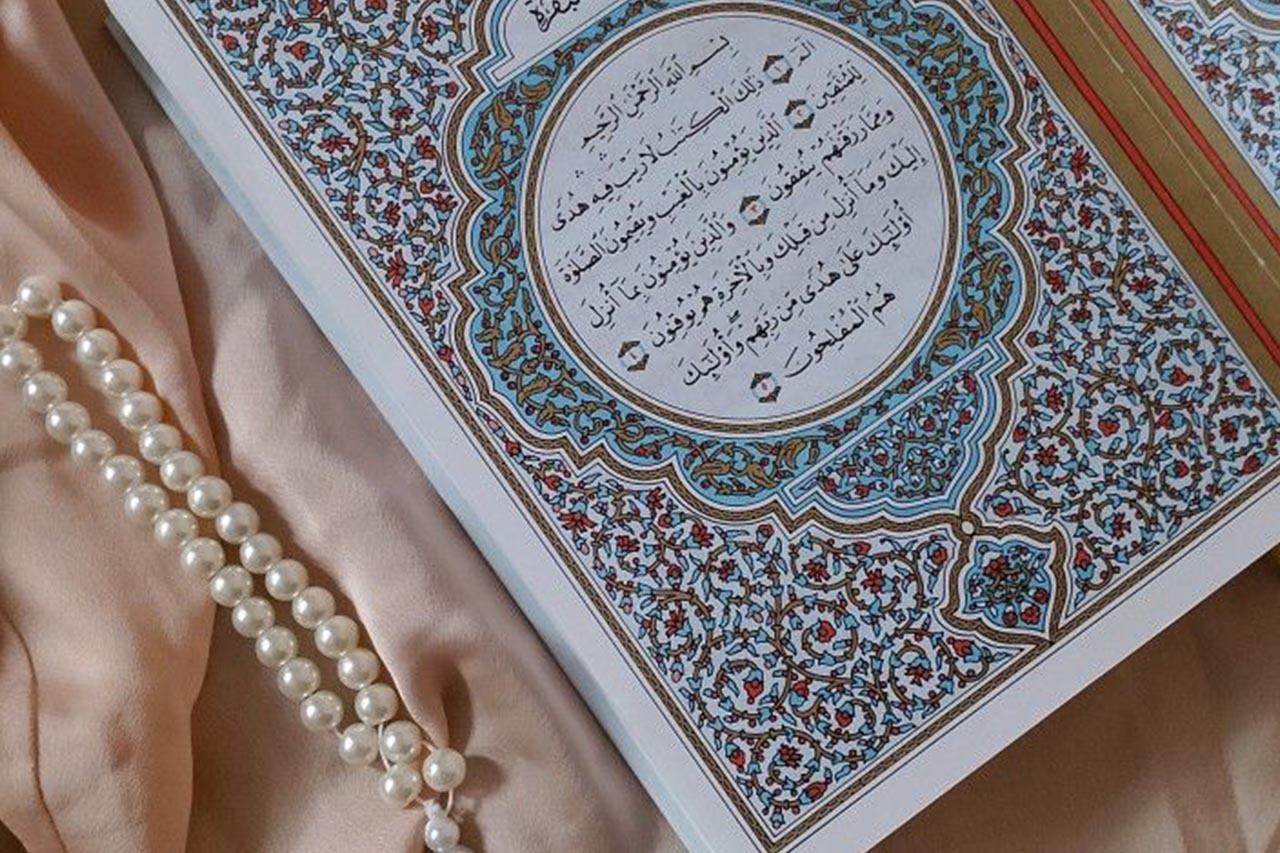 البقرة
بِسْمِ اللَّهِ الرَّحْمَٰنِ الرَّحِيمِ
الٓمٓ ١ ذَٰلِكَ الْكِتَٰبُ لَا رَيْبَ ۛ فِيهِ ۛ هُدًى
لِّلْمُتَّقِينَ ٢ الَّذِينَ يُؤْمِنُونَ بِالْغَيْبِ وَيُقِيمُونَ الصَّلَوٰةَ
وَمِمَّا رَزَقْنَٰهُمْ يُنفِقُونَ ٣ وَالَّذِينَ يُؤْمِنُونَ بِمَآ أُنزِلَ
إِلَيْكَ وَمَآ أُنزِلَ مِن قَبْلِكَ وَبِالْءَاخِرَةِ هُمْ يُوقِنُونَ ٤
أُو۟لَٰٓئِكَ عَلَىٰ هُدًى مِّن رَّبِّهِمْ ۖ وَأُو۟لَٰٓئِكَ
هُمُ الْمُفْلِحُونَ ٥